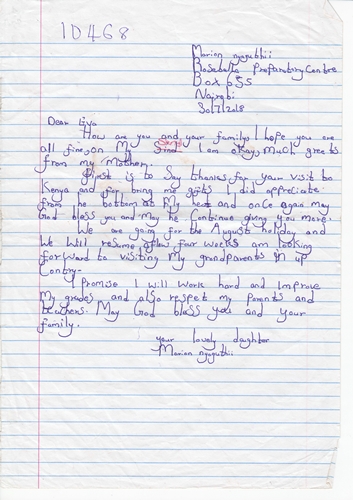 10468
Marion nguguthii
Rosebella Preparatory Centre
Box 655
Nairobi
30/7/2018
Dear Eiya
How are you and your family, I hope you are
all fine, on My side I am okay, Much greets
from my Mother.
First is to Say thanks for your visit to
Kenya and for bring me gifts I did appreciate
from he bottom at My heat and once again may
God bless you and May he Continue giving you more.
We are going for the August holiday and
We Will resume after four weeks am looking
forward to visiting My grandparents in up
Contry.
I Promise I will Work hard and Improve
My grades and also respect my Parents and
teachers. May God bless you and your
family.
your lovely daughter
Marion nguguthii